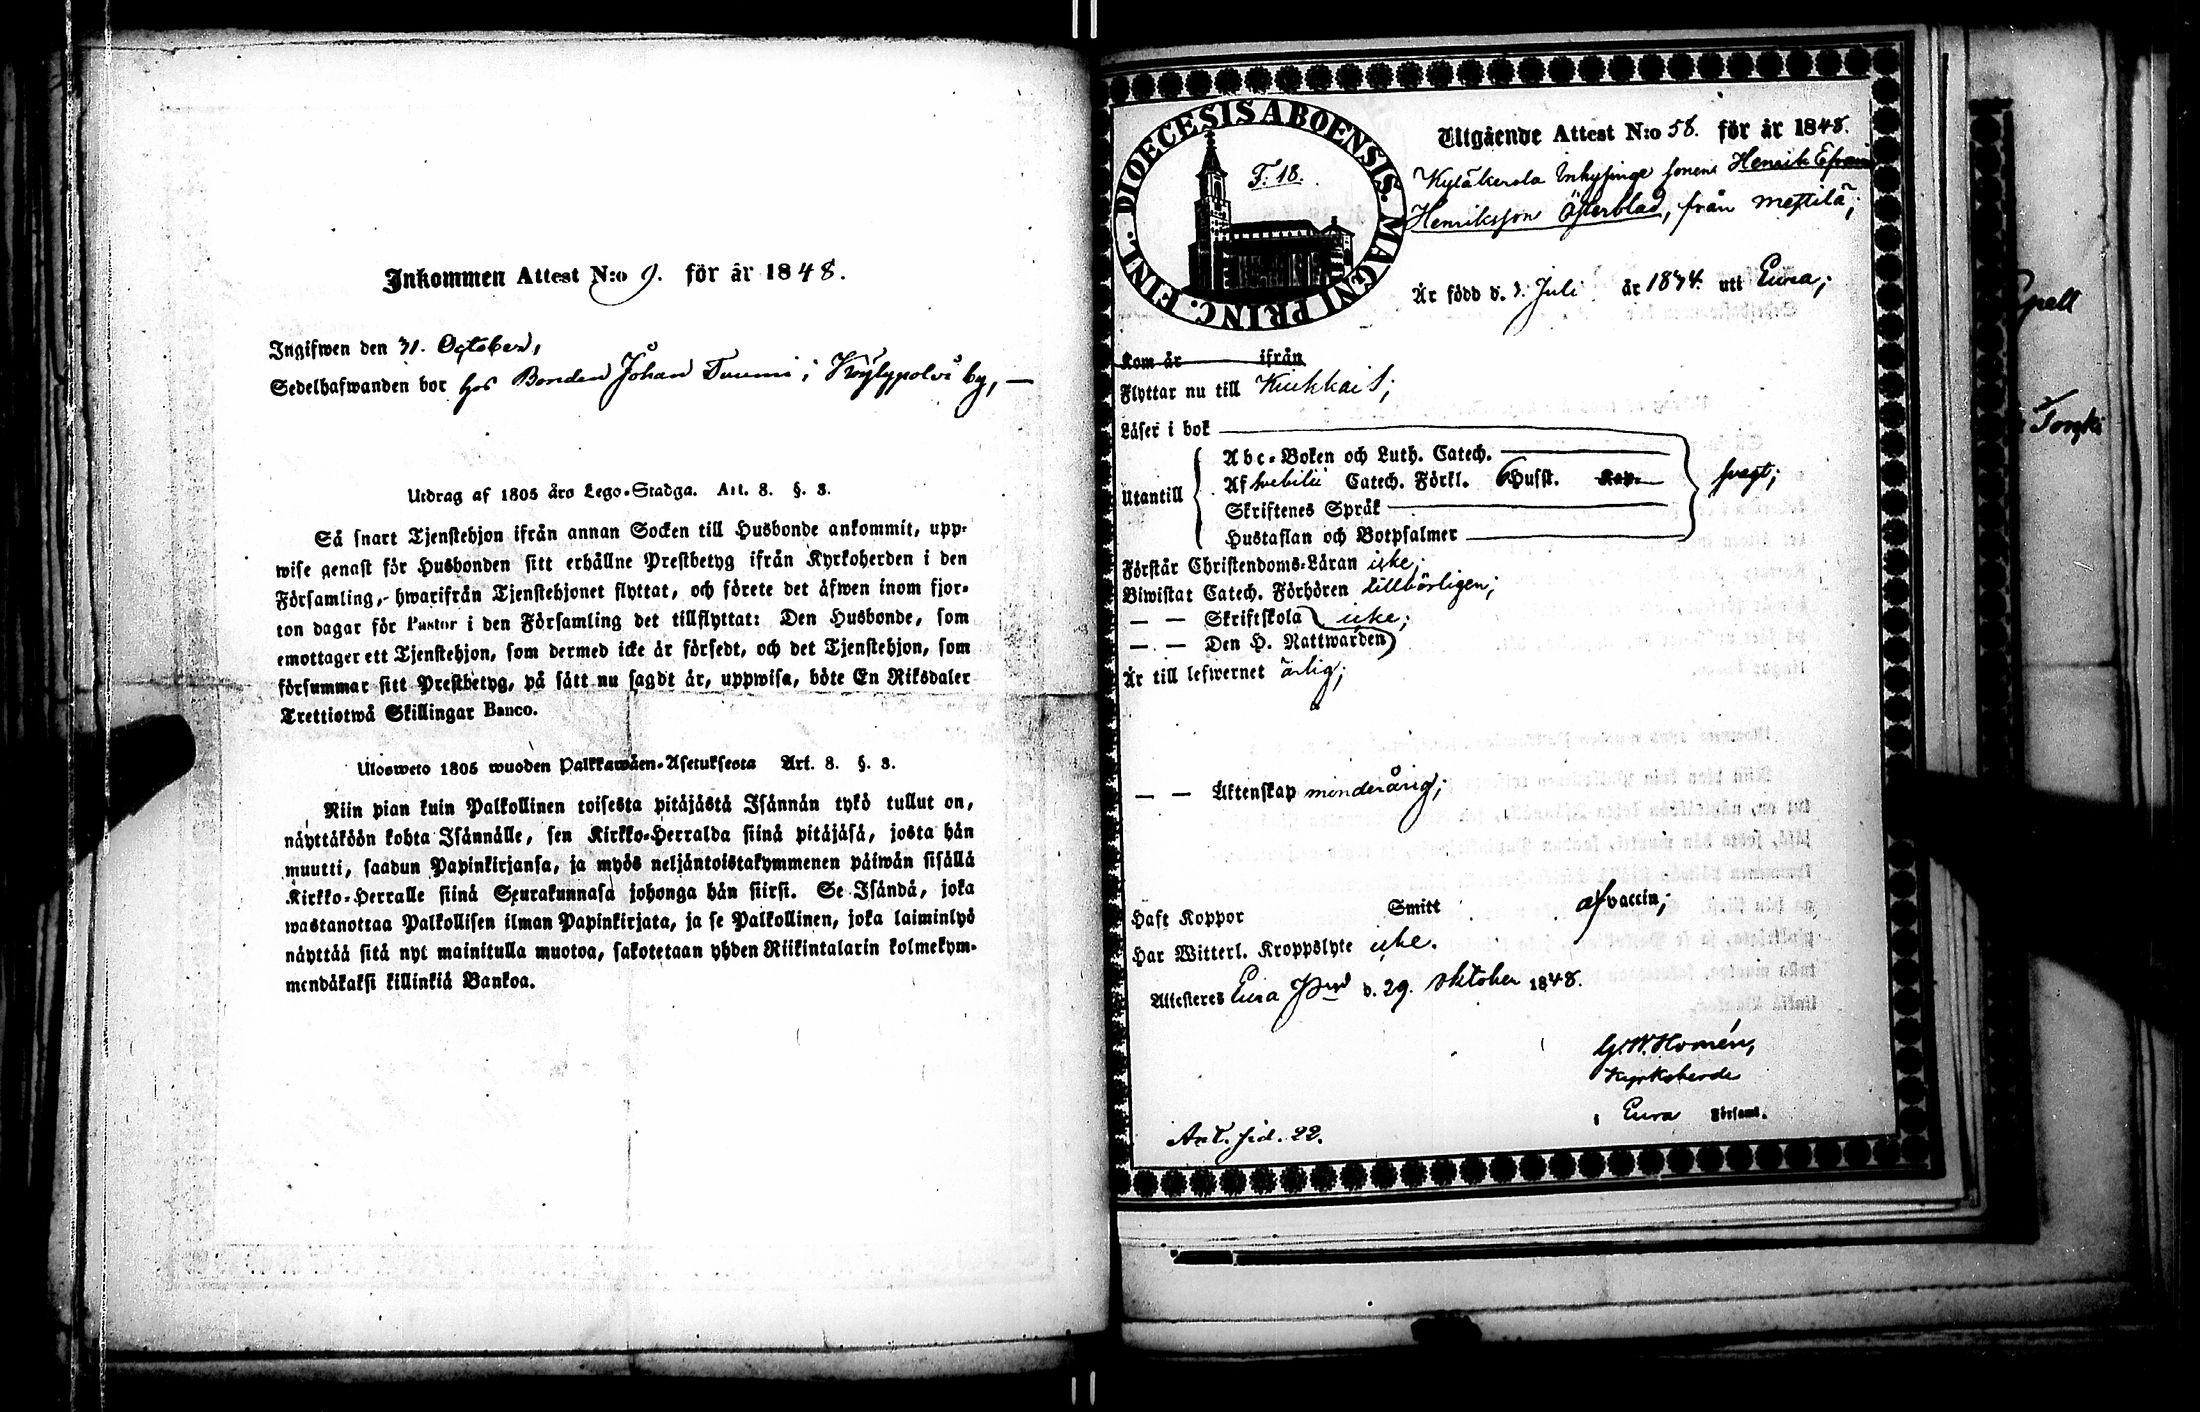 Inkommen Attest N:o 9. för år 1848.
Ingifwen den 31. October,
Sedelhafwanden bor hos Bonden Johan Tuumi i Köylypolvi by, —
Utdrag af 1805 års Lego-Stadga. Art. 8. §. 3.
Så snart Tjenstehjon ifrån annan Socken till Husbonde ankommit, upp-
wise genast för Husbonden sitt erhållne Prestbetyg ifrån Kyrkoherden i den
Församling, hwarifrån Tjenstehjonet flyttat, och förete det äfwen inom fjor-
ton dagar för Pastor i den Församling det tillflyttat: Den Husbonde, som
emottager ett Tjenstehjon, som dermed icke är försedt, och det Tjenstehjon, som
försummar sitt Prestbetyg, på sätt nu sagdt är, uppwisa, böte En Riksdaler
Trettiotwå Skillingar Banco.
Ulosweto 1805 wuoden Palkkawäen-Asetuksesta Art. 8. §. 3.
Niin pian kuin Palkollinen toisesta pitäjästä Isännän tykö tullut on,
näyttäköön kohta Isännälle, sen Kirkko-Herralda siinä pitäjäsä, josta hän
muutti, saadun Papinkirjansa, ja myös neljäntoistakymmenen päiwän sisällä
Kirkko-Herralle siinä Seurakunnasa johonga hän siirsi. Se Isändä, joka
wastanottaa Palkollisen ilman Papinkirjata, ja se Palkollinen, joka laiminlyö
näyttää sitä nyt mainitulla muotoa, sakotetaan yhden Riikintalarin kolmekym-
mendäkaksi killinkiä Bankoa.
FINL. DIOECESIS ABOENSIS. MAGNI PRINC.
F. 18.
Utgående Attest N:o 58. för år 1848.
Inhysinge sonen Henrik Efraim
Henriksson Österblad, från Mestilä;
Är född d. 3. Juli år 1834. utt Eura;
Kom år ifrån
Flyttar nu till Kiukkais;
Läser i bok
Utantill
Abc-Boken och Luth. Catech.
Af Svebilii Catech. Förkl. Husst. Kap.
svagt;
Skriftenes Språk
Hustaflan och Botpsalmer
Förstår Christendoms-Läran icke;
Biwistat Catech. Förhören tillbörligen;
— — Skriftskola icke;
— — Den H. Nattwarden
Är till lefwernet ärlig;
— — Äktenskap minderårig;
Haft Koppor Smitt af vaccin;
Har Witterl. Kroppslyte icke.
Attesteres Eura d. 29. Oktober 1848.
G. W. Homén,
Kyrkoherde
i Eura Församl.
Ant. sid. 22.